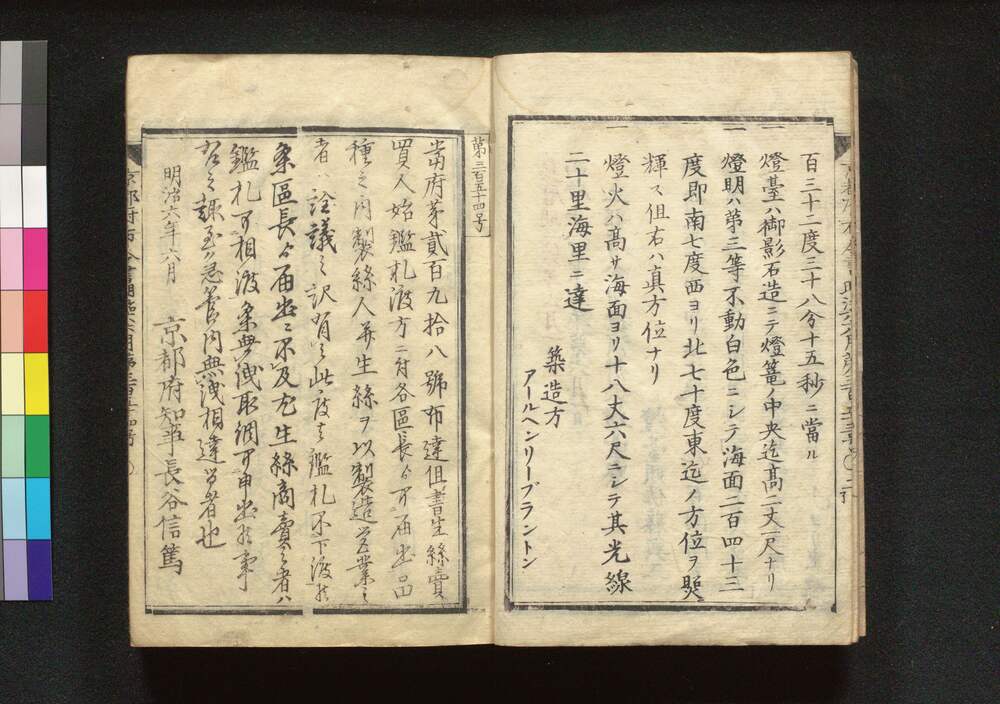 百三十二度三十八分十五秒ニ當ル
一燈臺ハ御影石造ニテ燈篭ノ中央迄高二丈一尺ナリ
一燈明ハ第三等不動白色ニシテ海面二百四十三
度即南七度西ヨリ北七十度東迄ノ方位ヲ照
輝ス但右ハ真方位ナリ
一燈火ハ高サ海面ヨリ十八丈六尺ニシテ其光線
二十里海里ニ達
築造方
アールヘンリーブラントン
第三百五十四号
當府第貳百九拾八號布達但書生絲賣
買人始鑑札渡方ニ付各區長ゟ可届出品
種之内製絲人并生絲ヲ以製造営業之
者ハ詮議之訳有之此度者鑑札不下渡
条區長ゟ届出ニ不及尤生絲商賣之者ハ
鑑札可相渡条無洩取調可申出事
右之趣管内無洩相達る者也
明治六年六月
京都府知事長谷信篤